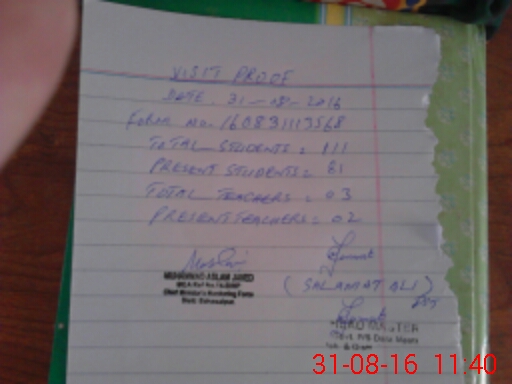 VISIT PROOF
DATE. 31-08-2016
FORM NO. 160831113568
TOTAL STUDENTS = 111
PRESENT STUDENTS = 81
TOTAL TEACHERS = 03
PRESENT TEACHERS = 02
MUHAMMAD ASLAM JAVED
Chief Minister's Monitoring Force
(SALAMAT ALI)
HEAD MASTER
31-08-16 11:40